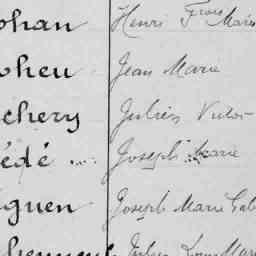 ohan Henri Frois Marie
oheu Jean Marie
chery Julien Victor
édé Joseph Marie
guen Joseph Marie Gab
Julien Louis Mar